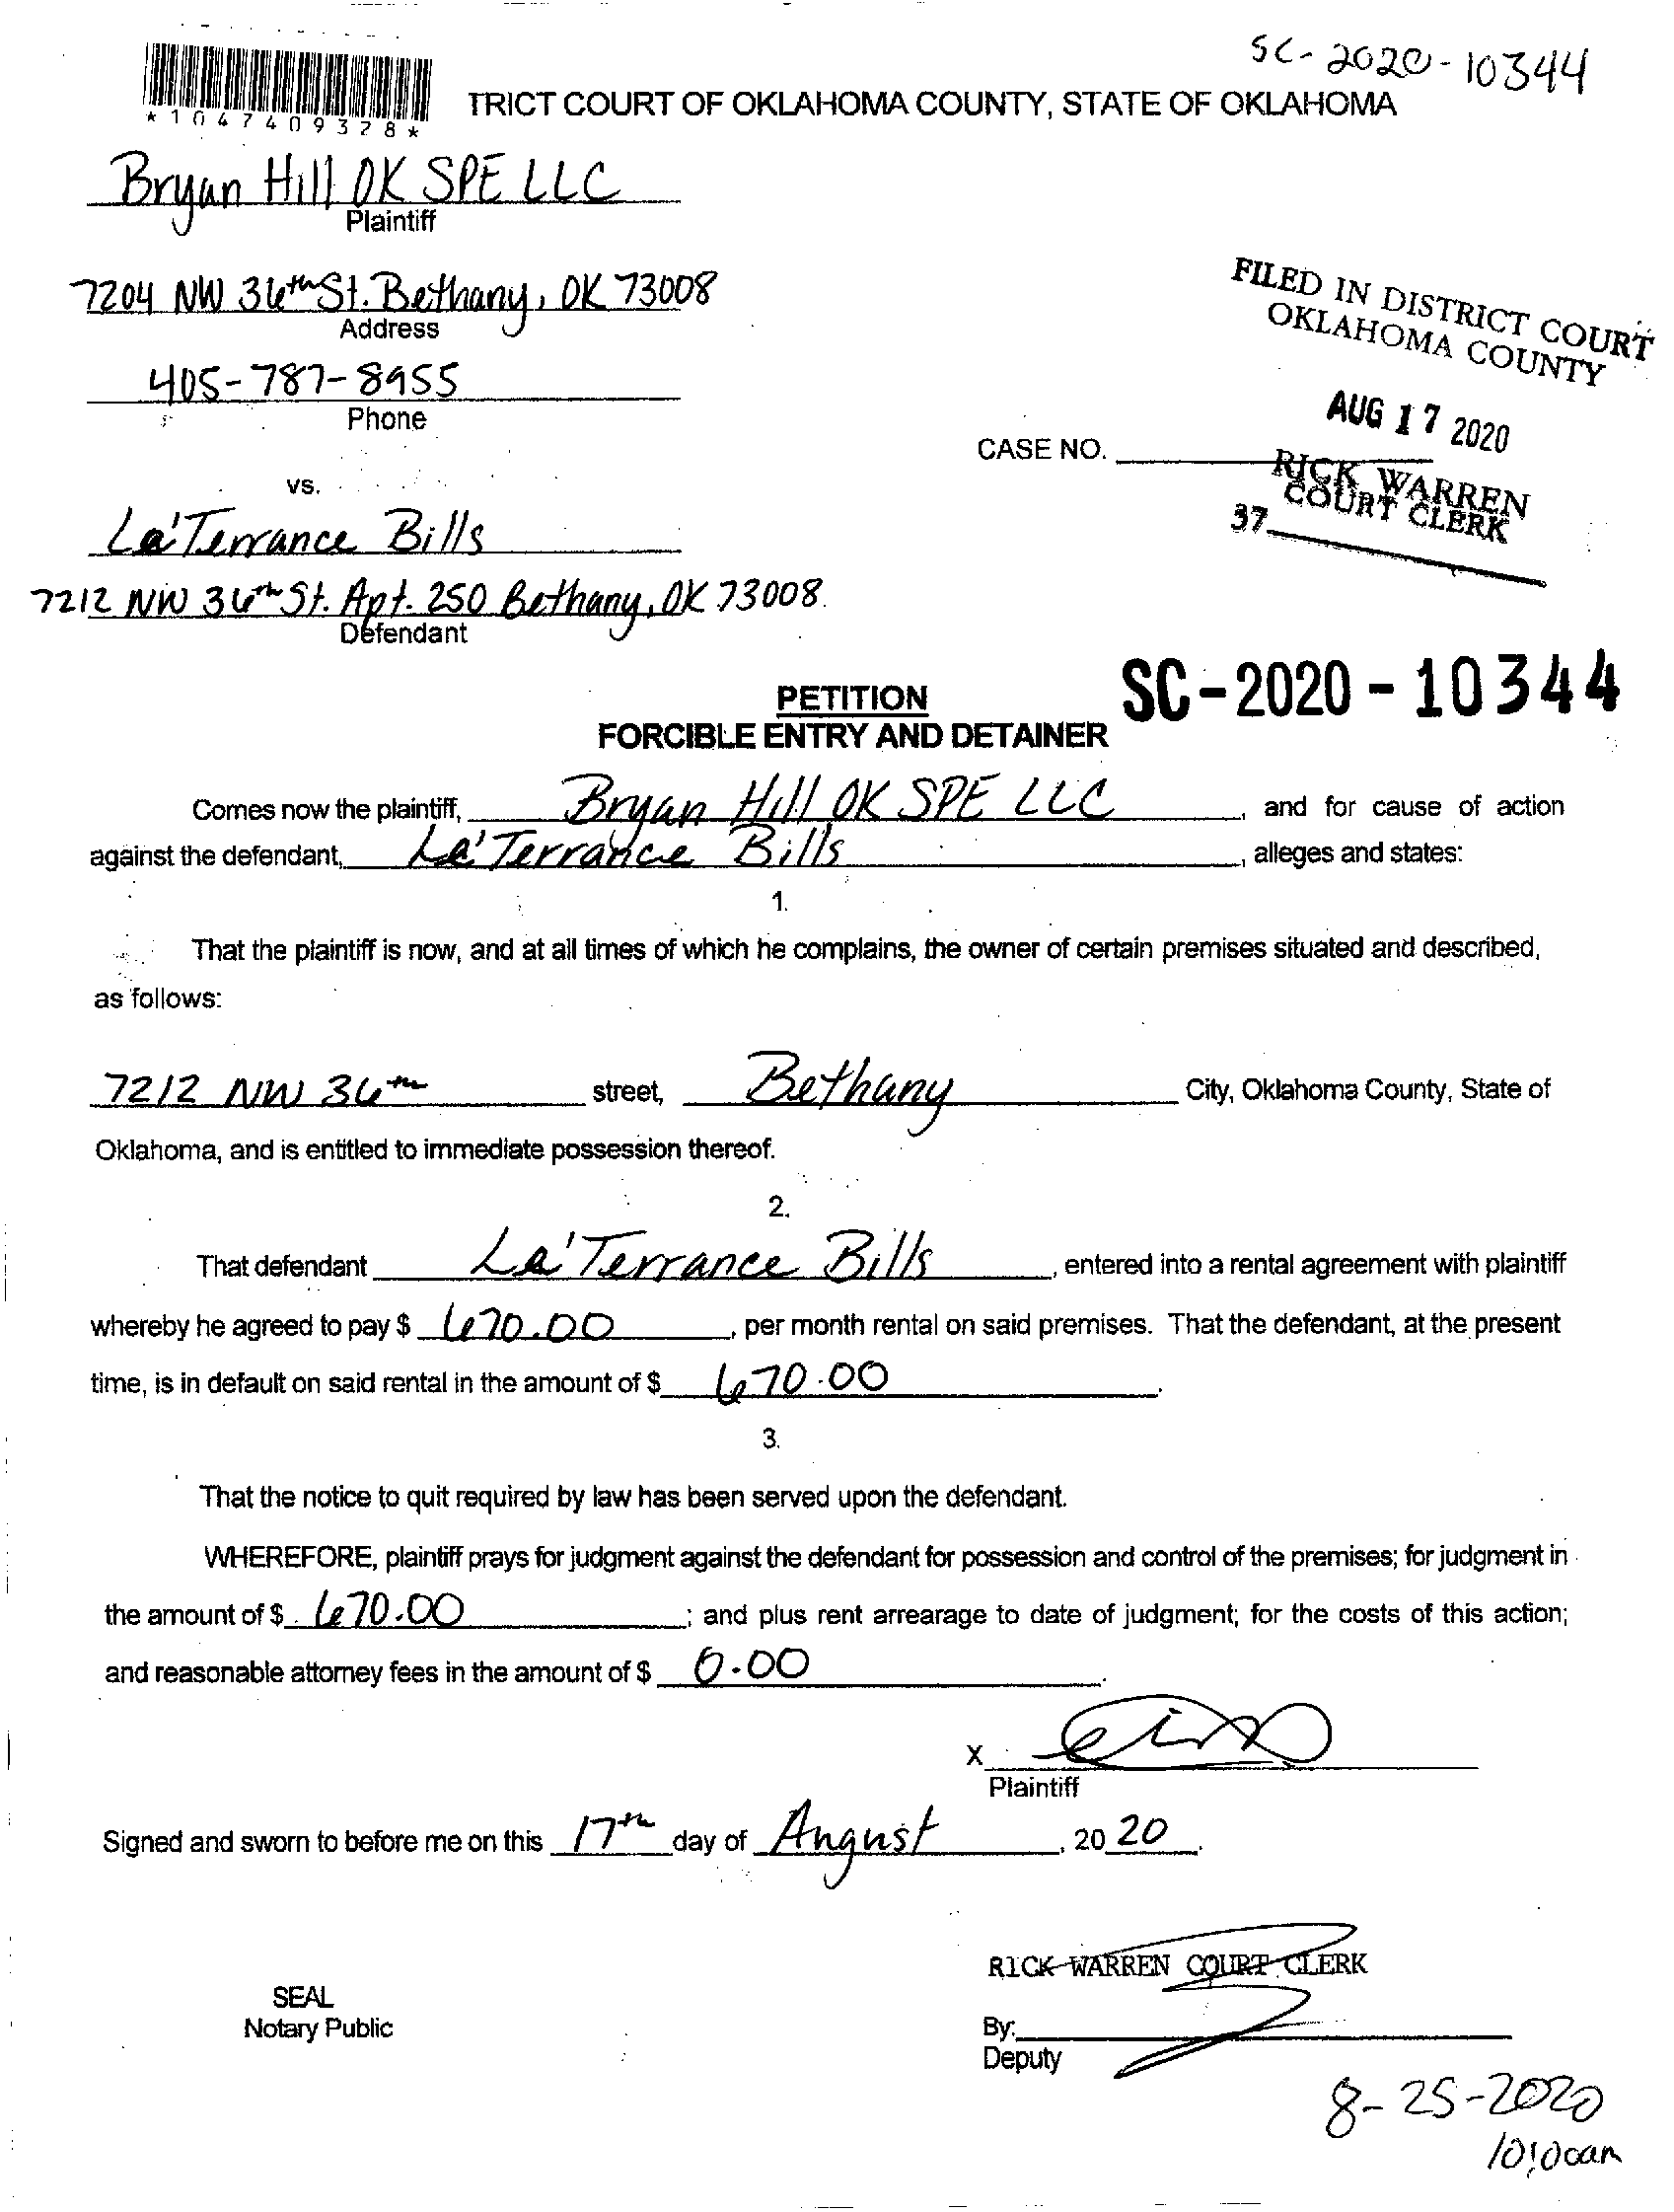 SC-2020-10344
*1047409328*
TRICT COURT OF OKLAHOMA COUNTY, STATE OF OKLAHOMA
Bryan Hill OK SPE LLC
Plaintiff
7204 NW 36th St. Bethany, OK 73008
Address
405-787-8955
Phone
FILED IN DISTRICT COURT
OKLAHOMA COUNTY
AUG 17 2020
CASE NO.
RICK WARREN
COURT CLERK
37
vs.
La'Terrance Bills
7212 NW 36th St. Apt. 250 Bethany, OK 73008
Defendant
PETITION
SC-2020-10344
FORCIBLE ENTRY AND DETAINER
Comes now the plaintiff, Bryan Hill OK SPE LLC, and for cause of action
against the defendant, La'Terrance Bills, alleges and states:
1.
That the plaintiff is now, and at all times of which he complains, the owner of certain premises situated and described,
as follows:
7212 NW 36th street, Bethany City, Oklahoma County, State of
Oklahoma, and is entitled to immediate possession thereof.
2.
That defendant La'Terrance Bills, entered into a rental agreement with plaintiff
whereby he agreed to pay $ 670.00, per month rental on said premises. That the defendant, at the present
time, is in default on said rental in the amount of $ 670.00.
3.
That the notice to quit required by law has been served upon the defendant.
WHEREFORE, plaintiff prays for judgment against the defendant for possession and control of the premises; for judgment in
the amount of $ 670.00; and plus rent arrearage to date of judgment; for the costs of this action;
and reasonable attorney fees in the amount of $ 0.00.
X
Plaintiff
Signed and sworn to before me on this 17th day of August, 2020.
RICK WARREN COURT CLERK
SEAL
Notary Public
By:
Deputy
8-25-2020
10:00am